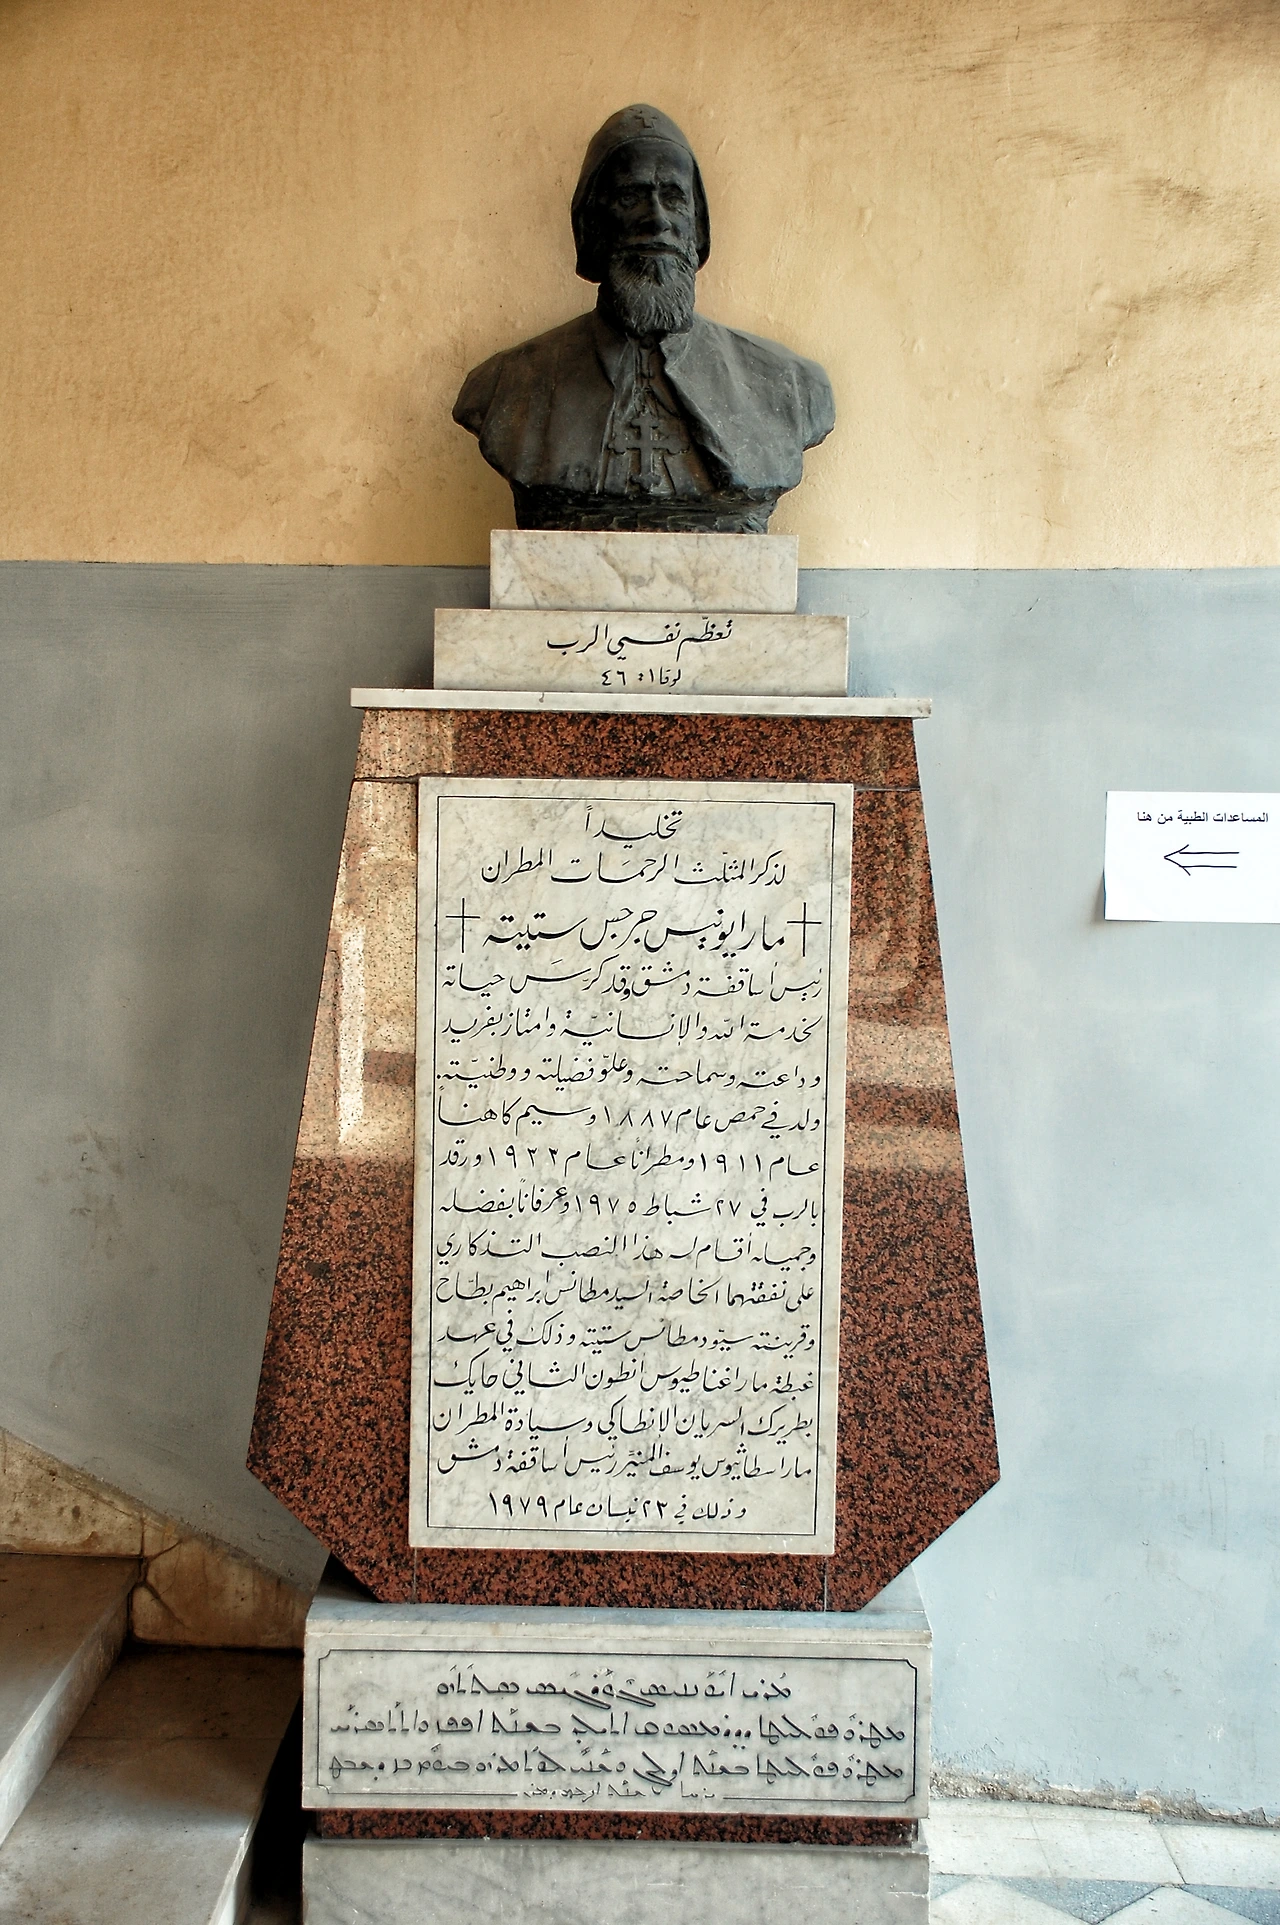 تعظّم نفسي الرب
لوقا ١: ٤٦
تخليداً
لذكر المثلّث الرحمَات المطران
مار ايونيس جرجس ستيته
رئيس أساقفة دمشق وقد كرّسَ حياته
لخدمة اللّه والإنسانيّة وامتاز بفريد
وداعته وسماحته وعلوّ فضيلته ووطنيّته.
ولد في حمص عام ١٨٨٧ وسيم كاهناً
عام ١٩١١ ومطراناً عام ١٩٣٣ ورقد
بالرب في ٢٧ شباط ١٩٧٥ وعرفاناً بفضله
وجميله أقام له هذا النصب التذكاري
على نفقتهما الخاصة السيد مطانس ابراهيم بطّاح
وقرينته سيّود مطانس ستيته وذلك في عهد
غبطة مار اغناطيوس انطون الثاني حايك
بطريرك السريان الإنطاكي وسيادة المطران
مار اسطاثيوس يوسف المنيّر رئيس أساقفة دمشق
وذلك في ٢٣ نيسان عام ١٩٧٩
المساعدات الطبية من هنا